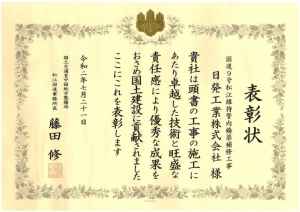 表彰状
国道9号松江維持管内橋梁補修工事
日発工業株式会社 様
貴社は頭書の工事の施工に
あたり卓越した技術と旺盛な
責任感により優秀な成果を
おさめ国土建設に貢献されました
ここにこれを表彰します
令和二年七月二十一日
国土交通省中国地方整備局
松江国道事務所長
藤田 修